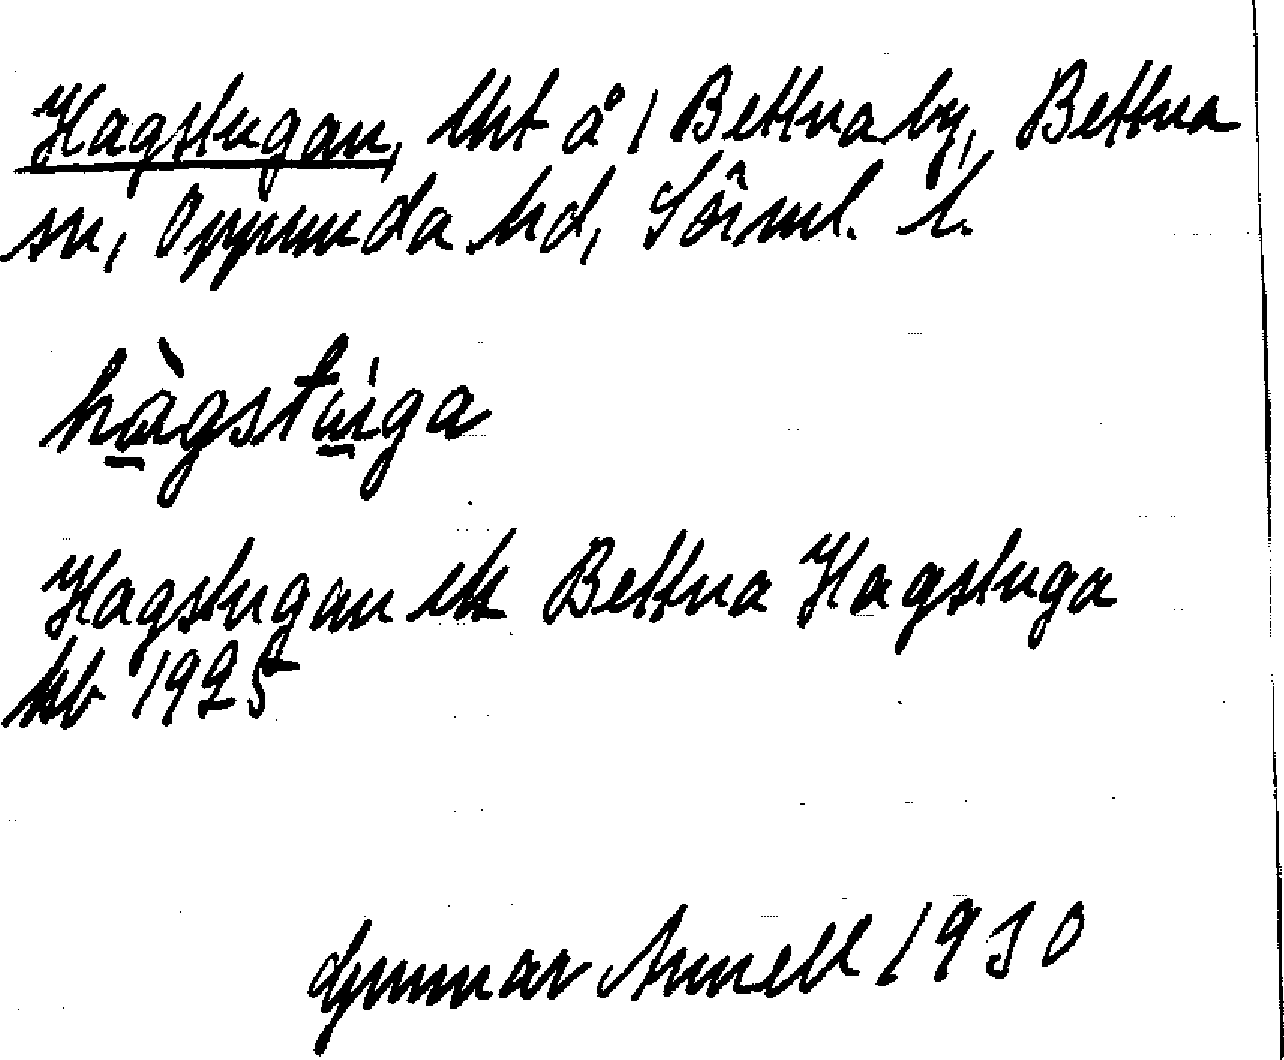 Hagstugan, lht å 1 Bettna by, Bettna
sn, Oppunda hd, Sörml. l.
hàgstuga
Hagstugan Bettna Hagstuga
kb 1925
Gunnar Annell 1930